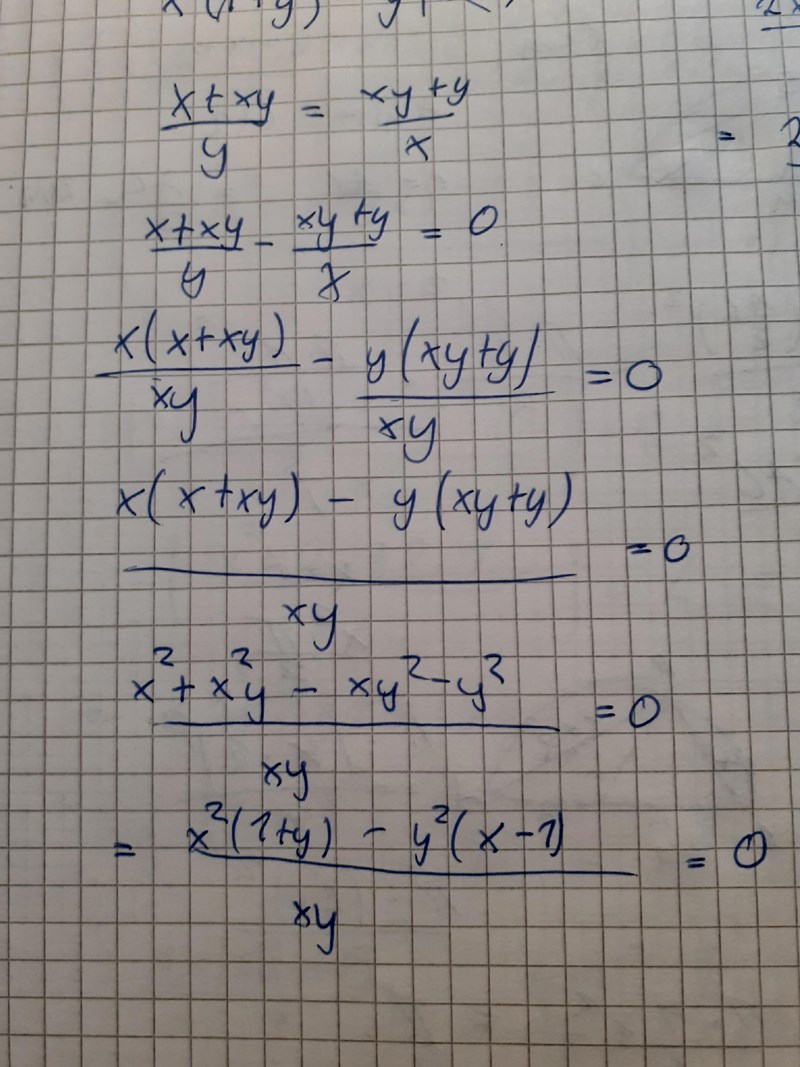 x + xy / y = xy + y / x
x + xy / y - xy + y / x = 0
x(x + xy) / xy - y(xy + y) / xy = 0
x(x + xy) - y(xy + y) / xy = 0
x² + x²y - xy² - y² / xy = 0
= x²(1+y) - y²(x-1) / xy = 0